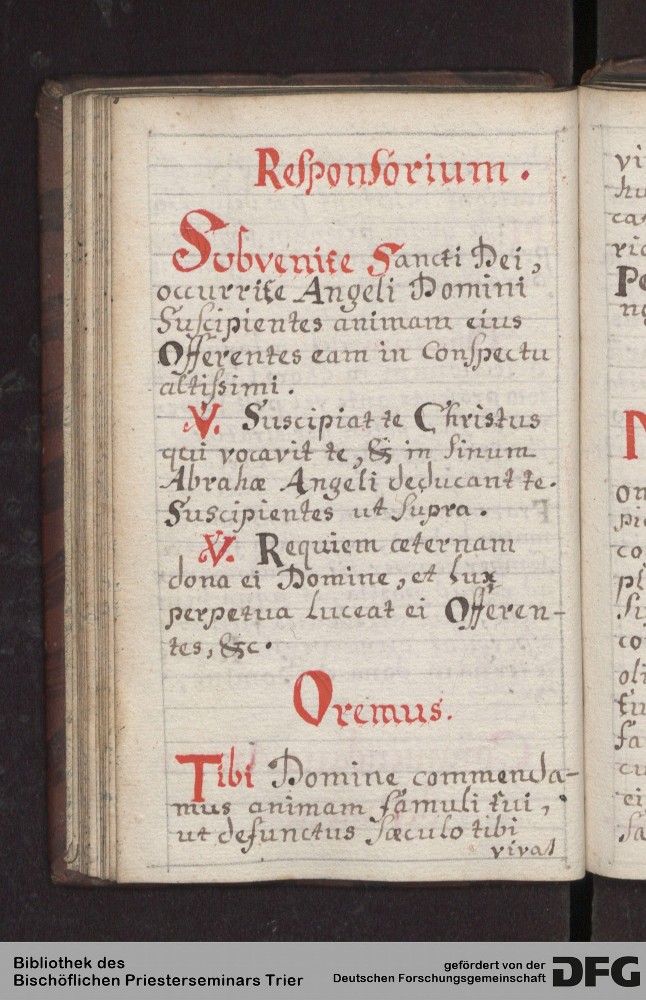 Responsorium.
Subvenite Sancti Dei,
occurrite Angeli Domini
Suscipientes animam eius
Offerentes eam in Conspectu
altissimi.
V. Suscipiat te Christus
qui vocavit te, & in sinum
Abrahæ Angeli deducant te.
Suscipientes ut supra.
V. Requiem æternam
dona ei Domine, et lux
perpetua luceat ei Offeren-
tes, &c.
Oremus.
Tibi Domine commenda-
mus animam famuli tui,
ut defunctus sæculo tibi
vivat
vi
hu
ca
ric
Pe
on
pic
co
co
oli
tu
fa
cu
ei
sa
Bibliothek des
Bischöflichen Priesterseminars Trier
gefördert von der
Deutschen Forschungsgemeinschaft
DFG